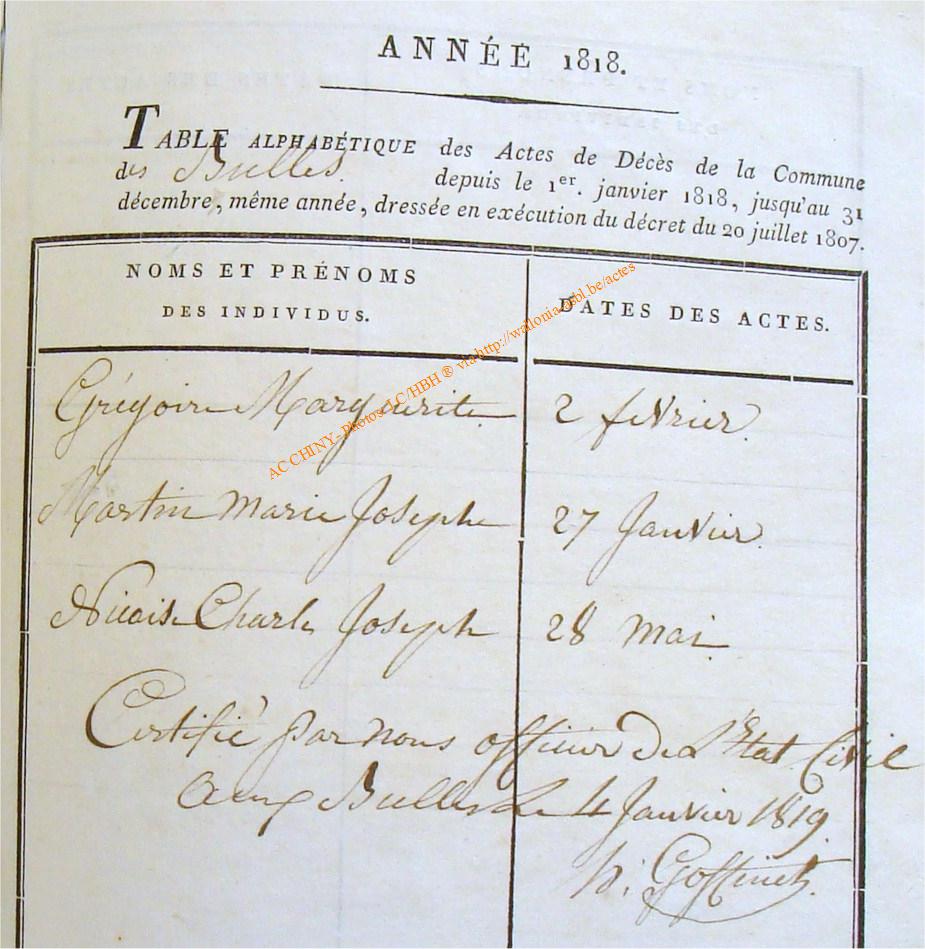 ANNÉE 1818.
TABLE ALPHABÉTIQUE des Actes de Décès de la Commune
des Bulles. depuis le 1er. janvier 1818, jusqu'au 31
décembre, même année, dressée en exécution du décret du 20 juillet 1807.
NOMS ET PRÉNOMS
DES INDIVIDUS.
DATES DES ACTES.
Grégoire Marguerite 2 fevrier.
Martin Marie Josephe 27 Janvier.
Nicaise Charle Joseph 28 mai.
Certifié par nous officier de L'Etat Civil
aux Bulles Le 4 Janvier 1819.
h. Goffinet.
AC CHINY- photos JLC/HBH ® via http://wallonia-asbl.be/actes